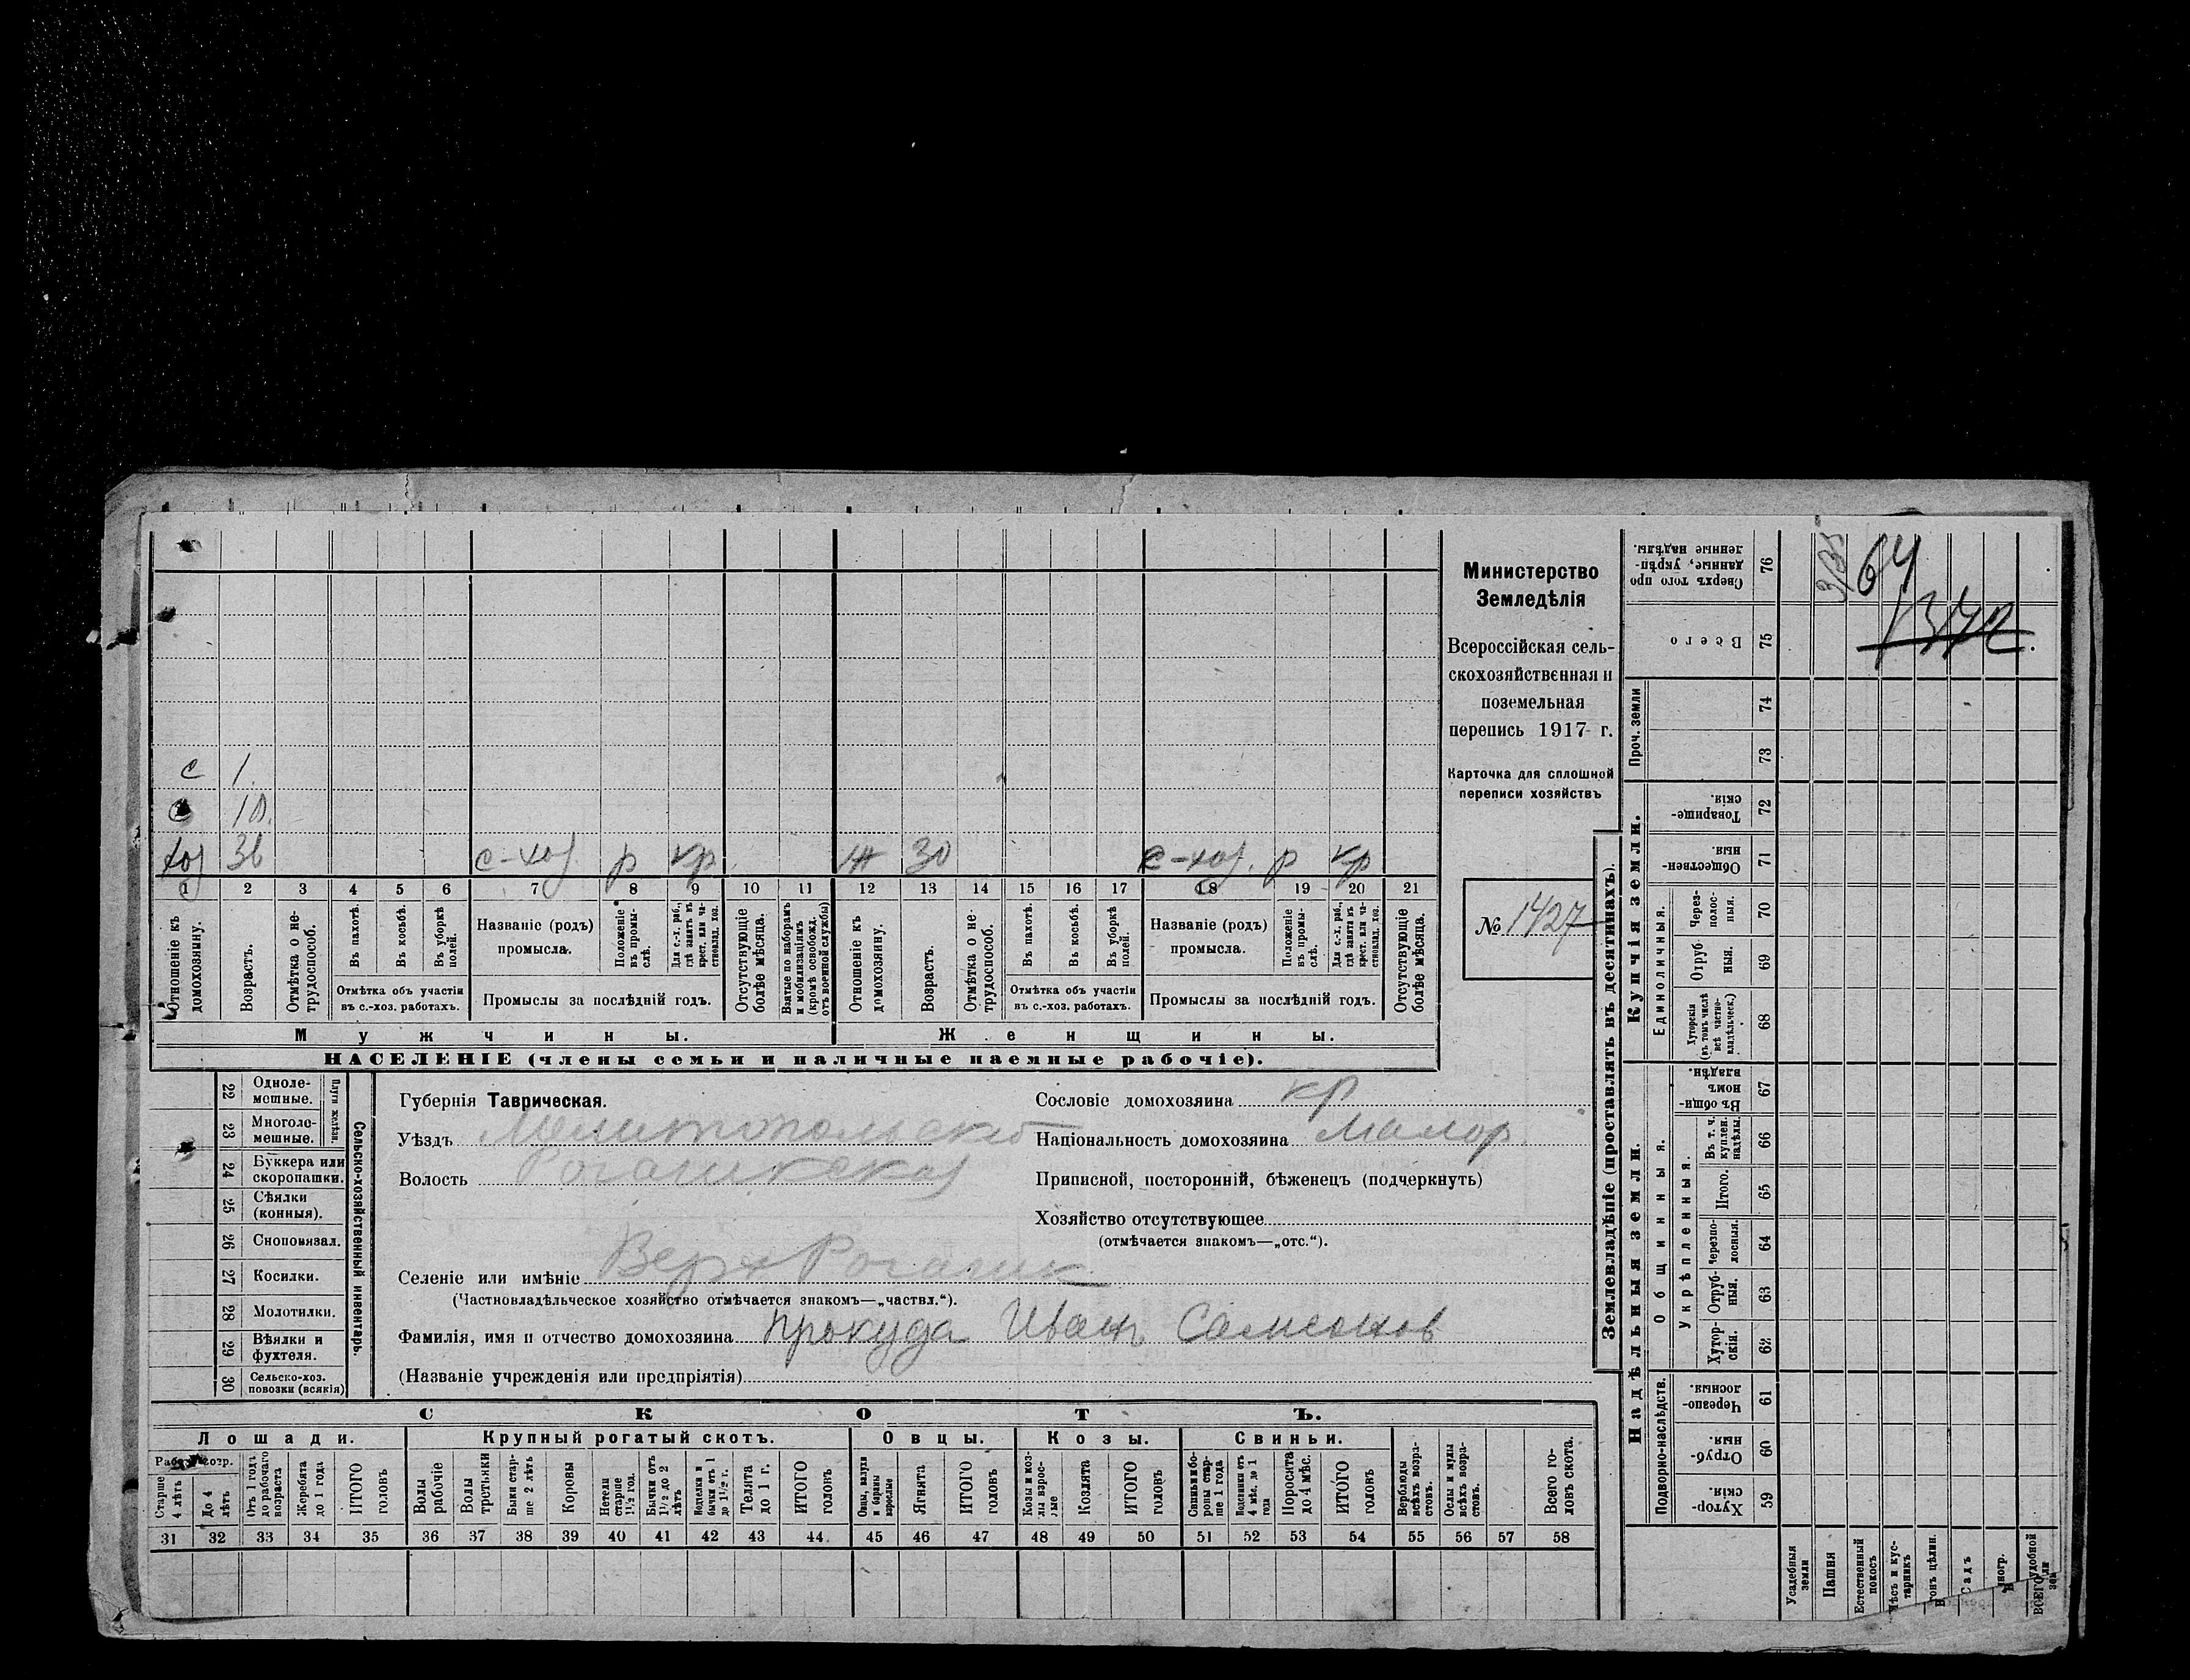 с 1.
с 10.
хоз 36 с-хоз р кр ж 30 с-хоз. р кр
1 2 3 4 5 6 7 8 9 10 11 12 13 14 15 16 17 18 19 20 21
Отношеніе къ домохозяину.
Возрастъ.
Отмѣтка о нетрудоспособ.
Въ пахотѣ.
Въ косьбѣ.
Въ уборкѣ полей.
Отмѣтка объ участіи
въ с.-хоз. работахъ.
Названіе (родъ)
промысла.
Положеніе въ промыслѣ.
Для с.-х. раб., гдѣ занятъ въ крест. или частновлад. хоз.
Промыслы за послѣдній годъ.
Отсутствующіе болѣе мѣсяца.
Взятые по наборамъ и мобилизаціямъ (кромѣ освобожд. отъ военной службы)
Отношеніе къ домохозяину.
Возрастъ.
Отмѣтка о нетрудоспособ.
Въ пахотѣ.
Въ косьбѣ.
Въ уборкѣ полей.
Отмѣтка объ участіи
въ с.-хоз. работахъ.
Названіе (родъ)
промысла.
Положеніе въ промыслѣ.
Для с.-х. раб., гдѣ занятъ въ крест. или частновлад. хоз.
Промыслы за послѣдній годъ.
Отсутствующіе болѣе мѣсяца.
Мужчины.
Женщины.
НАСЕЛЕНІЕ (члены семьи и наличные наемные рабочіе).
Министерство
Земледѣлія
Всероссійская сель-
скохозяйственная и
поземельная
перепись 1917 г.
Карточка для сплошной
переписи хозяйствъ
№ 1427
22 Одноле-
мешные.
23 Многоле-
мешные.
Плуги желѣзн.
24 Буккера или
скоропашки.
25 Сѣялки
(конныя).
26 Сноповязал.
27 Косилки.
28 Молотилки.
29 Вѣялки и
фухтеля.
30 Сельско-хоз.
повозки (всякія)
Сельско-хозяйственный инвентарь.
Губернія Таврическая.
Уѣздъ Мелитопольскій
Волость Рогачикская
Селеніе или имѣніе Верх Рогачик
(Частновладѣльческое хозяйство отмѣчается знакомъ—„частвл.“).
Фамилія, имя и отчество домохозяина Прокуда Иван Самсонов
(Названіе учрежденія или предпріятія)
Сословіе домохозяина кр
Національность домохозяина малор
Приписной, посторонній, бѣженецъ (подчеркнуть)
Хозяйство отсутствующее
(отмѣчается знакомъ—„отс.“).
СКОТЪ.
Лошади. Крупный рогатый скотъ. Овцы. Козы. Свиньи.
Старше 4 лѣтъ
До 4 лѣтъ
Отъ 1 года до рабочаго возраста
Жеребята до 1 года
ИТОГО головъ
Волы рабочіе
Волы третьяки
Быки старше 2 лѣтъ
Коровы
Нетели старше 1½ год.
Бычки отъ 1½ до 2 лѣтъ
Телята до 1 г.
ИТОГО головъ
Ягнята
ИТОГО головъ
Козы и козлы взрослые
Козлята
ИТОГО головъ
Поросята до 4 мѣс.
ИТОГО головъ
Верблюды всѣхъ возрастовъ.
Ослы и мулы всѣхъ возрастовъ.
Всего головъ скота.
31 32 33 34 35 36 37 38 39 40 41 42 43 44. 45 46 47 48 49 50 51 52 53 54 55 56 57 58
Землевладѣніе (проставлять въ десятинахъ).
Надѣльныя земли.
Купчія земли.
Проч. земли
Подворно-наслѣдств.
Общинныя.
Укрѣпленныя.
Единоличныя.
Сверхъ того проданные, укрѣпленные надѣлы. 76
Всего 75
74
73
Товарищескія. 72
Общественныя. 71
Черезполосныя. 70
Отрубныя. 69
Хуторскія (въ томъ числѣ всѣ частновладѣльческ.) 68
Въ общинномъ владѣн. 67
Въ т. ч. куплен. надѣлы. 66
Итого. 65
Черезполосныя. 64
Отрубныя. 63
Хуторскія. 62
Черезполосныя. 61
Отрубныя. 60
Хуторскія. 59
64
Усадебныя земли
Пашня
Естественный покосъ
Лѣсъ и кустарникъ
Садъ